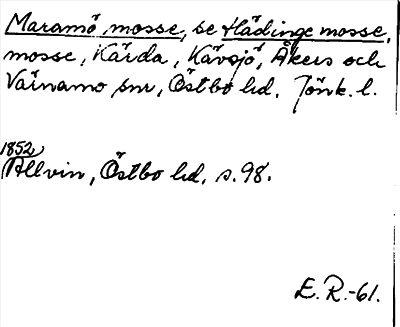 Maramö mosse, se Hädinge mosse,
mosse, Kärda, Kävsjö, Åkers och
Värnamo snr, Östbo hd. Jönk. l.
1852
Allvin, Östbo hd, s. 98.
E. R.-61.